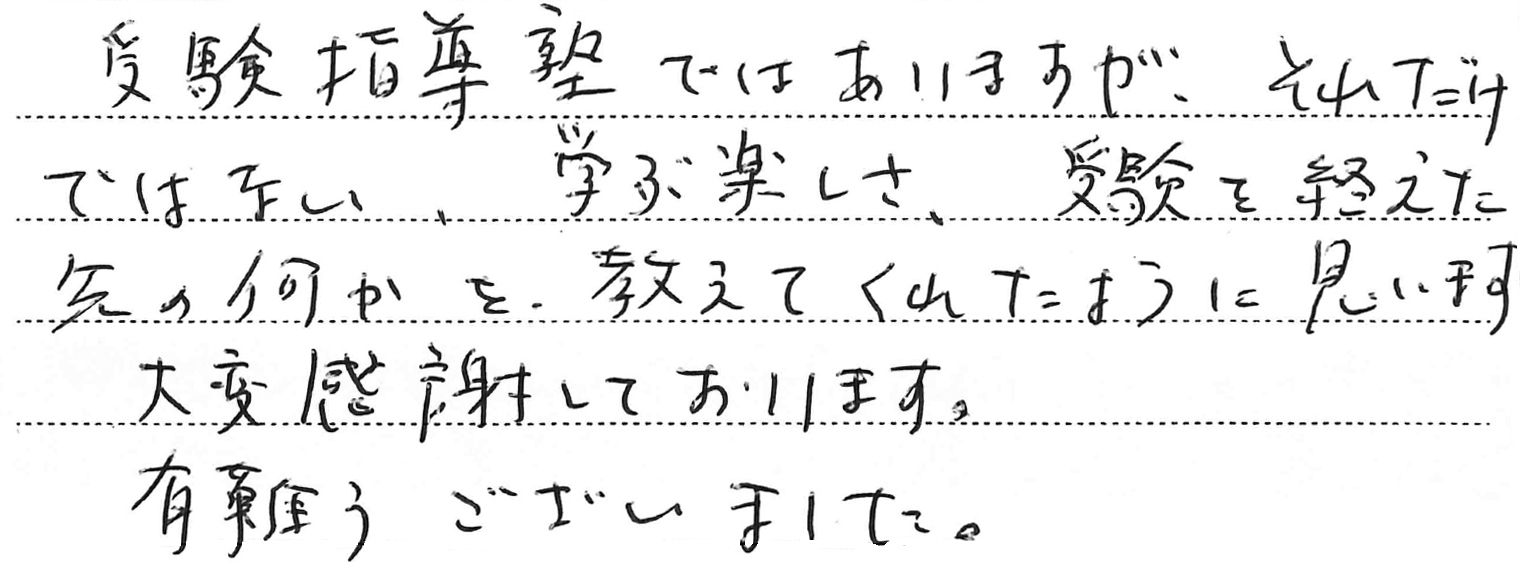 受験指導塾ではありますが、それだけ
ではない、学ぶ楽しさ、受験を終えた
先の何かを教えてくれたように思います
大変感謝しております。
有難うございました。